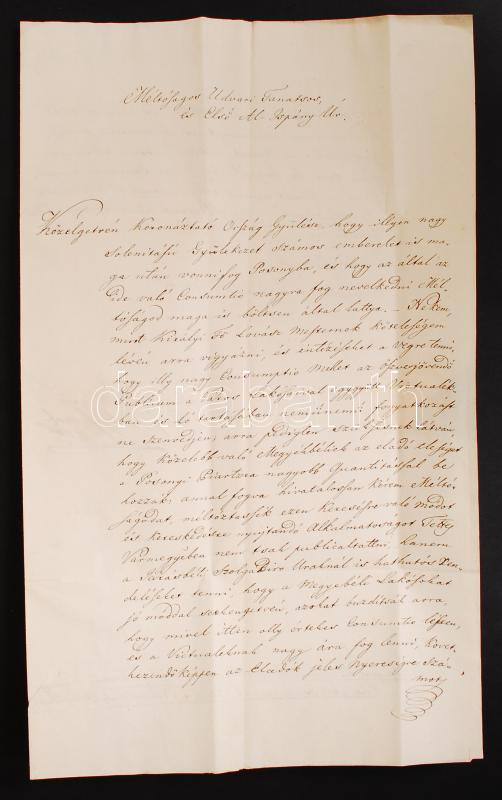 Méltóságos Udvari Tanatsos,
és Első Al-Ispány Úr.
Közelgetvén Koronáztató Ország Gyűlése, hogy illyen nagy
Solenitású Gyülekezet Számos embereket is ma-
ga után vonni fog Posonyba, és hogy az által az
ide való Consumtio nagyra fog nevelkedni Mél-
tóságod maga is bőltsen által lattya. – Nekem,
mint Királyi Fő Lovász Mesternek kötelességem
lévén arra vigyázni, és intézéseket a végre tenni,
hogy illy nagy Consumptio mellet az öszvejövendő
Publicum a Város Lakossival eggyütt Victualék-
ban és ló tartásában nemünemű fogyatkozást
ne szenvedjen; arra pediglen szükségesnek látván
hogy közelebb való Megyebéliek az eladó eleséget
a Posonyi Piartzra nagyobb Quantitással be
hozzák; annál fogva hivatalossan kérem Méltó-
ságodat, méltóztassék ezen keresésre való módot
és kereskedésre nyujtandó Alkalmatosságot Tettes
Vármegyében nem tsak publicáltattni, hanem
a Járásbéli Szolga Biró Uraknál is hathatós Ren-
deléseket tenni, hogy a Megyebéli Lakosokat
jó móddal serkengetvén, azokat buzdítsák arra,
hogy mivel itten olly értékes Consumtio léssen,
és a Victualéknak nagy ára fog lenni, követ-
kezendőképpen az Eladók jeles nyereségre Szá-
mot
darabanth